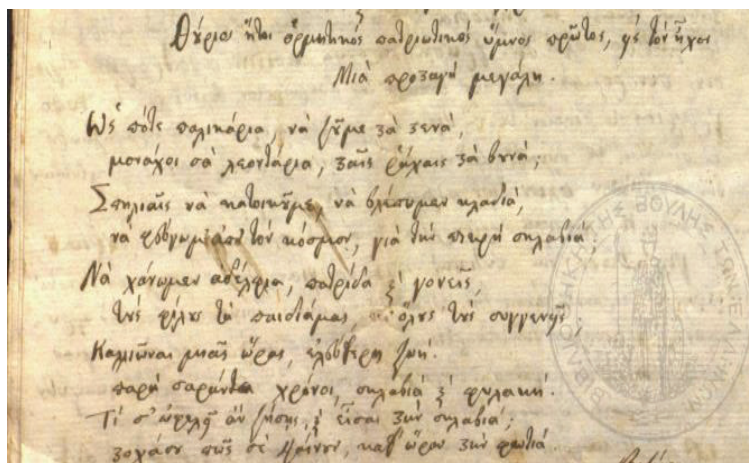 Θύριος ἤτοι ὁρμητικός πατριωτικός ὕμνος πρῶτος, εἰς τόν ἦχον
Μιὰ προσαγή μεγάλη.
Ὡς πότε παλικάρια, νὰ ζοῦμε στὰ στενά,
μονάχοι σὰ λεοντάρια, σταῖς ράχαις στὰ βουνά;
Σπηλιαῖς νὰ κατοικοῦμε, νὰ βλέπουμεν κλαδιά,
νὰ φεύγωμ' ἀπ' τόν κόσμον, γιὰ τήν πικρή σκλαβιά;
Νὰ χάνωμεν ἀδέλφια, πατρίδα καὶ γονεῖς,
τούς φίλους τὰ παιδιά μας, κι' ὅλους τούς συγγενεῖς;
Καλλιῶναι μιᾶς ὥρας, ἐλεύθερη ζωή.
παρά σαράντα χρόνοι, σκλαβιά καὶ φυλακή.
Τί σ' ὠφελεῖ ἄν ζήσης, καὶ εἶσαι στήν σκλαβιά;
στοχάσου πῶς σέ ψαίνουν, καθ' ὥραν στήν φωτιά.
ΒΙΒΛΙΟΘΗΚΗ ΤΗΣ ΒΟΥΛΗΣ ΤΩΝ ΕΛΛΗΝΩΝ